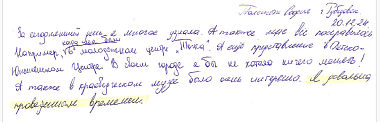 г. Губаха
20.12.24
За сегодняшний день я многое узнала. А также мне все понравилось
Например, в молодежном центре "Точка". А ещё представление в
Юношеском Центре. В своем городе я бы не хотела ничего менять!
А также в краеведческом музее было очень интересно. Я довольна
проведенным временем.